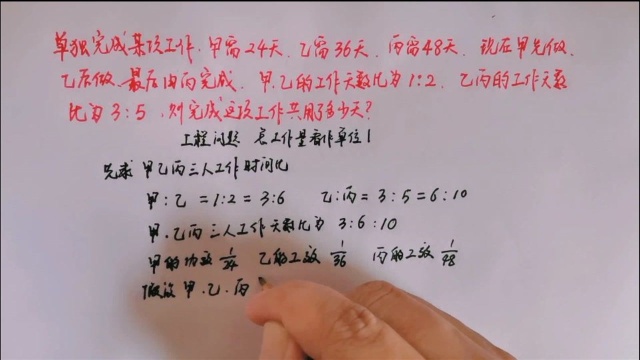 单独完成某项工作,甲需24天,乙需36天,丙需48天,现在甲先做,
乙后做,最后由丙完成,甲、乙的工作天数比为1:2,乙丙的工作天数
比为3:5,则完成这项工作共用了多少天?
工程问题 总工作量看作单位1
先求 甲乙丙三人工作时间比
甲:乙=1:2=3:6 乙:丙=3:5=6:10
甲.乙丙三人工作天数比为 3:6:10
甲的功效 1/24 乙的工效 1/36 丙的工效 1/48
假设 甲.乙.丙